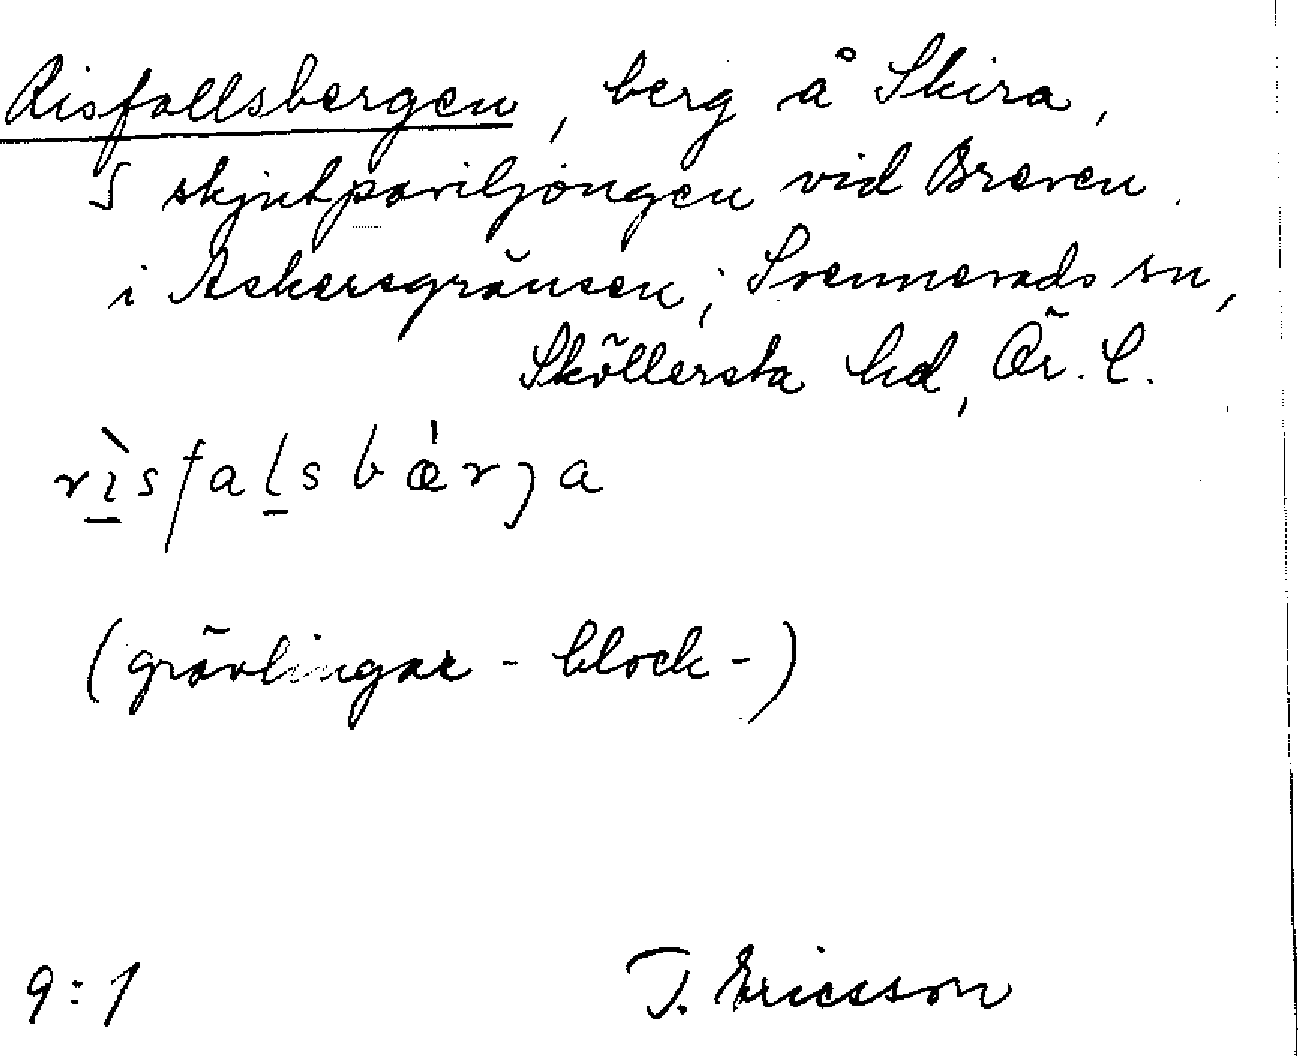 Risfallsbergen, berg å Skira,
S skjutpaviljongen vid Breven
i Askersgränsen; Svennevads sn,
Sköllersta hd, Ör. l.
rìsfalsbærja
(grävlingar - block -)
9:1 T. Ericsson